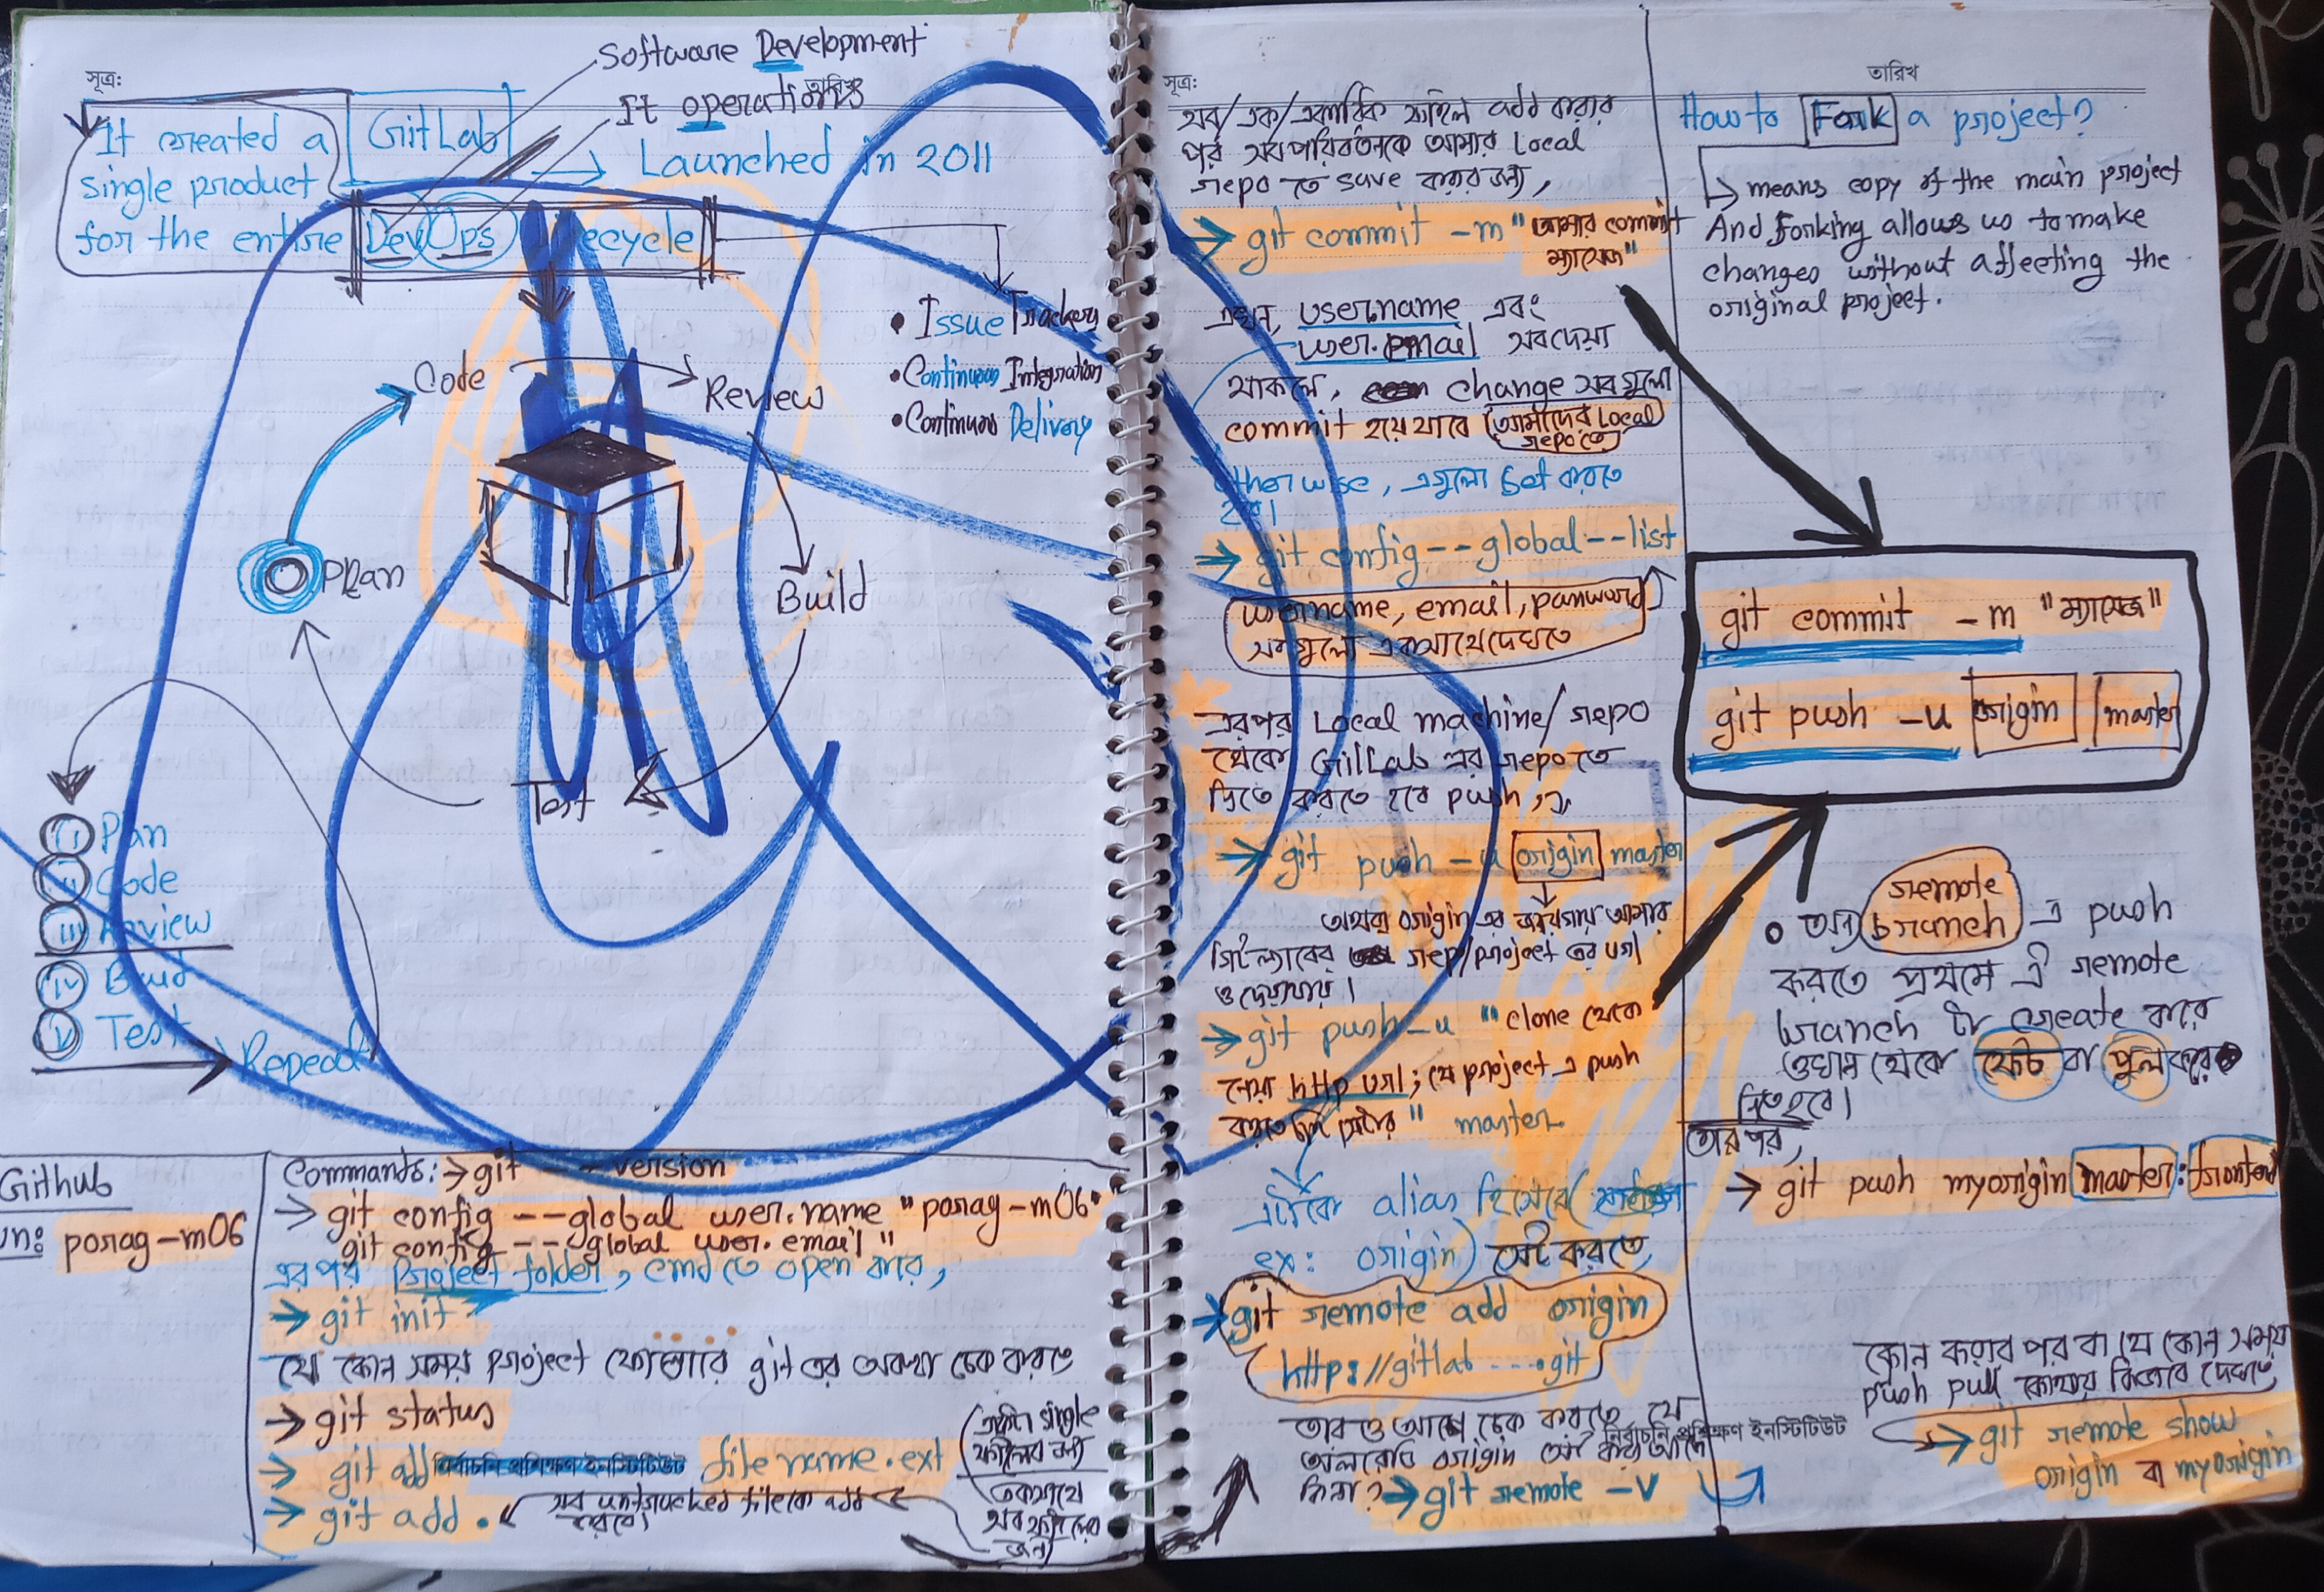 সূত্র:
Software Development
It operations
তারিখ
It created a
single product
for the entire DevOps Lifecycle
GitLab
→ Launched in 2011
• Issue Trackers
• Continuous Integration
• Continuous Delivery
Code
Review
Plan
Build
Test
i Plan
ii Code
iii Review
iv Build
v Test
Repeat
Github
un: porag-m06
Commands: → git --version
→ git config --global user.name "porag-m06"
git config --global user.email "
এরপর Project folder, cmd তে open করে,
→ git init
যে কোন সময় project ফোল্ডারে git এর অবস্থা চেক করতে
→ git status
→ git add নির্বাচনি প্রশিক্ষণ ইনস্টিটিউট file name.ext
(একটা single
ফাইলের জন্য
→ git add .
সব untracked file কে add
করবে।
একসাথে
সব ফাইলের
জন্য
সূত্র:
সব/এক/একাধিক ফাইল add করার
পর সব পরিবর্তনকে আমার Local
repo তে save করার জন্য,
→ git commit -m "আমার commit
ম্যাসেজ"
এখন, user.name এবং
user.email সব দেয়া
থাকলে, change সবগুলো
commit হয়ে যাবে (আমাদের Local
repo তে)
otherwise, এগুলো set করতে
হবে।
→ git config --global --list
username, email, password
সবগুলো একসাথে দেখতে
এরপর Local machine/repo
থেকে GitLab এর repo তে
দিতে করতে হবে push,
→ git push -u origin master
অথবা origin এর জায়গায় আমার
গিটল্যাবের repo/project এর url
ও দেয়া যায়।
→ git push -u "clone থেকে
নেয়া http url; যে project এ push
করতে চাই সেটার" master
এটাকে alias হিসেবে (
ex: origin) সেট করতে,
→ git remote add origin
http://gitlab ....git
তারও আগে চেক করতে যে
অলরেডি origin সেট করা আছে
কিনা? → git remote -v
নির্বাচনি প্রশিক্ষণ ইনস্টিটিউট
তারিখ
How to Fork a project?
↳ means copy of the main project
And Forking allows us to make
changes without affecting the
original project.
git commit -m "ম্যাসেজ"
git push -u origin master
• অন্য remote
branch এ push
করতে প্রথমে ঐ remote
branch টা create করে
ওখান থেকে ফেচ বা পুল করে
নিতে হবে।
তারপর,
→ git push myorigin master:frontend
ক্লোন করার পর বা যে কোন সময়
push pull কোথায় কিভাবে দেখতে
→ git remote show
origin বা myorigin